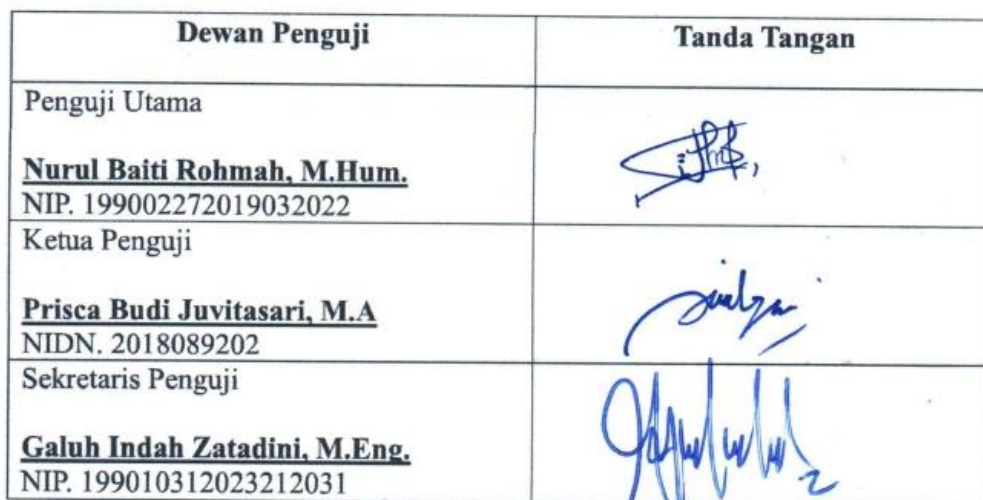 Dewan Penguji
Tanda Tangan
Penguji Utama
Nurul Baiti Rohmah, M.Hum.
NIP. 199002272019032022
Ketua Penguji
Prisca Budi Juvitasari, M.A
NIDN. 2018089202
Sekretaris Penguji
Galuh Indah Zatadini, M.Eng.
NIP. 199010312023212031